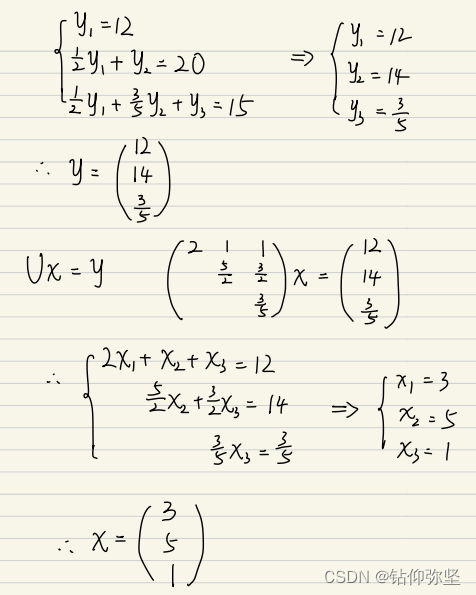 { y₁ = 12
½y₁ + y₂ = 20 ⇒ { y₁ = 12
½y₁ + 3/5 y₂ + y₃ = 15 y₂ = 14
y₃ = 3/5
∴ y = (12
14
3/5)
Ux = y (2 1 1
5/2 3/2
3/5) x = (12
14
3/5)
∴ { 2x₁ + x₂ + x₃ = 12
5/2 x₂ + 3/2 x₃ = 14 ⇒ { x₁ = 3
3/5 x₃ = 3/5 x₂ = 5
x₃ = 1
∴ x = (3
5
1)
CSDN @钻仰弥坚